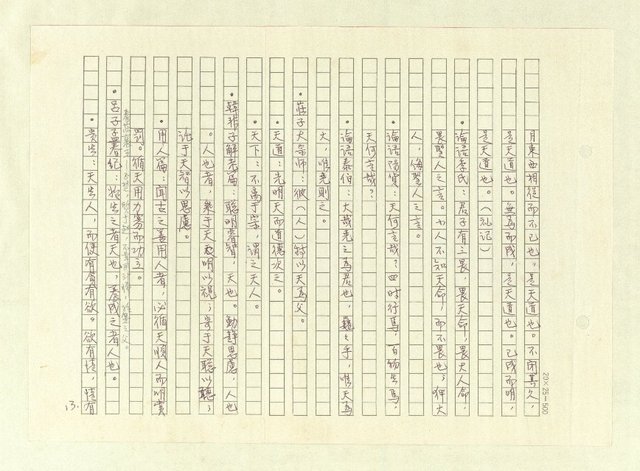 月東西相從而不已也。是天道也。不閉其久，
是天道也。無為而成，是天道也。已成而明，
是天道也。（礼记）
論語季氏：君子有三畏，畏天命，畏大人，
畏聖人之言。小人不知天命，而不畏也，狎大
人，侮聖人之言。
論語陽貨：天何言哉？四時行焉，百物生焉，
天何言哉？
論語泰伯：大哉堯之為君也，巍巍乎，唯天為
大，唯堯則之。
莊子大宗師：彼（人）特以天為父。
天道：先明天而道德次之。
天下：不離于宗，謂之天人。
韓非子解老篇：聰明睿智，天也。動静思慮，人也
。人也者，乘于天明以視，寄于天聰以聽，
託于天智以思慮。
用人篇：聞古之善用人者，必循天順人而明賞
罰。循天用力寡而功立。
呂子孟春纪：始生之者天也，养成之者人也。
貴生：天生人，而使有貪有欲。欲有情，情有
13.
20×25=500